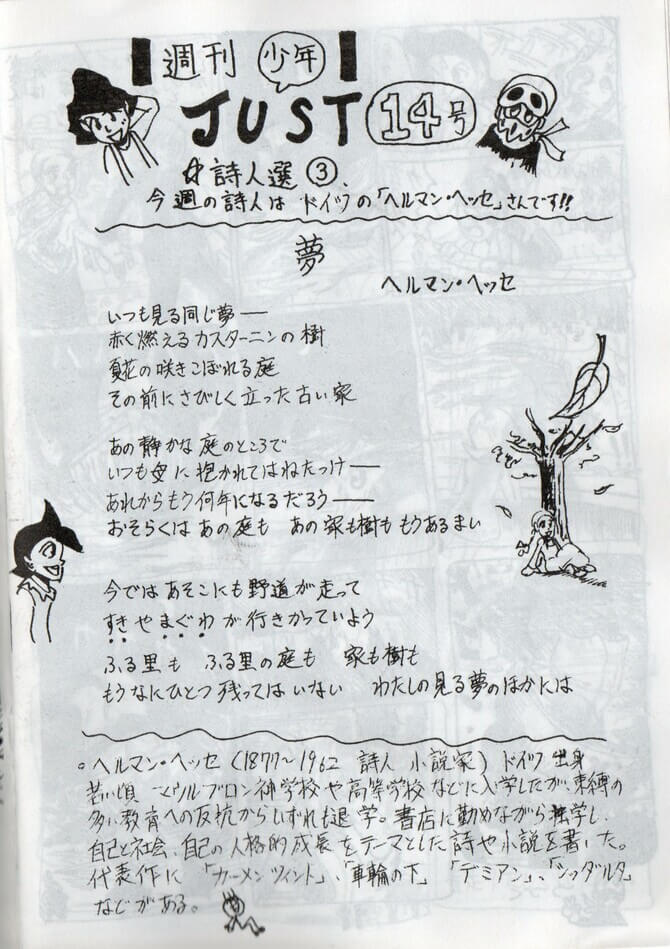 週刊 少年
JUST 14号
☆詩人選 ③、
今週の詩人は ドイツの「ヘルマン・ヘッセ」さんです!!
夢
ヘルマン・ヘッセ
いつも見る同じ夢――
赤く燃えるカスターニンの樹
夏花の咲きこぼれる庭
その前にさびしく立った古い家
あの静かな庭のところで
いつも に抱かれてはねたっけ――
あれからもう何年になるだろう――
おそらくは あの庭も あの家も樹も もうあるまい
今では あそこにも野道が走って
すきやまぐわが行きかっていよう
ふる里も ふる里の庭も 家も樹も
もうなにひとつ残ってはいない わたしの見る夢のほかには
。ヘルマン・ヘッセ (1877～1962 詩人 小説家) ドイツ出身
若い頃 マウルブロン神学校や高等学校などに入学したが、束縛の
多い教育への反抗からいずれも退学。書店に勤めながら独学し、
自己と社会、自己の人格的成長をテーマとした詩や小説を書いた。
代表作に 「カーメンツィント」、「車輪の下」 「デミアン」、「シッダルタ」
などがある。